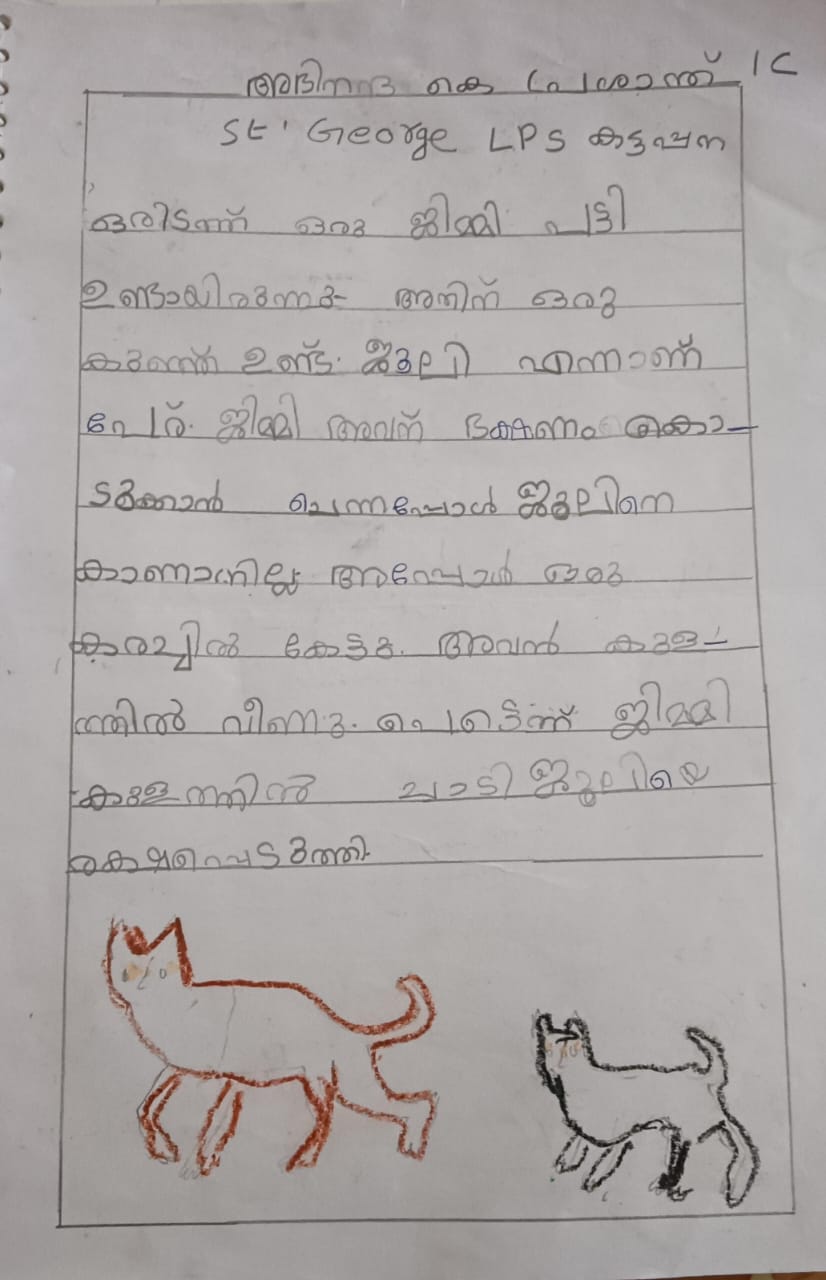 അഭിനന്ദ കെ പ്രശാന്ത് 1C
St. George LPS കട്ടപ്പന
ഒരിടത്ത് ഒരു ജിമ്മി പട്ടി
ഉണ്ടായിരുന്നു അതിന് ഒരു
കുഞ്ഞ് ഉണ്ട്. ജൂലി എന്നാണ്
പേര്. ജിമ്മി അവന് ഭക്ഷണം കൊ-
ടുക്കാൻ ചെന്നപ്പോൾ ജൂലിനെ
കാണാനില്ല അപ്പോൾ ഒരു
കരച്ചിൽ കേട്ടു. അവൻ കുള-
ത്തിൽ വീണു. പെട്ടെന്ന് ജിമ്മി
കുളത്തിൽ ചാടി ജൂലിയെ
രക്ഷപ്പെടുത്തി.